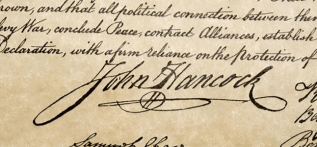 rown, and that all political connection between them
levy War, conclude Peace, contract Alliances, establish
Declaration, with a firm reliance on the Protection of
John Hancock